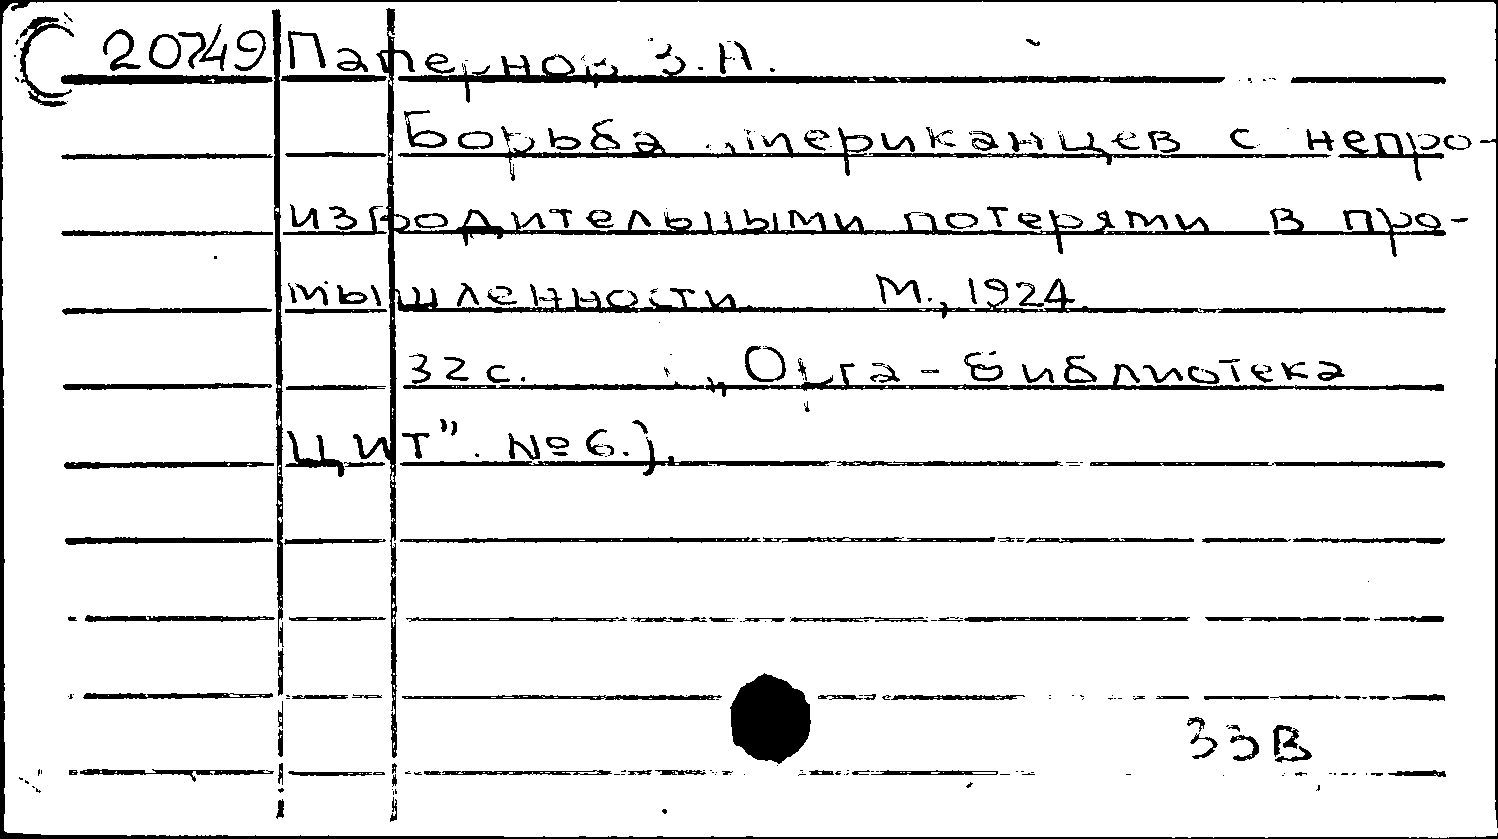 20749 Папернов З.А.
Борьба американцев с непро-
изводительными потерями в про-
мышленности. М., 1924.
32 с. („Орга - библиотека
ЦИТ". № 6.).
33В